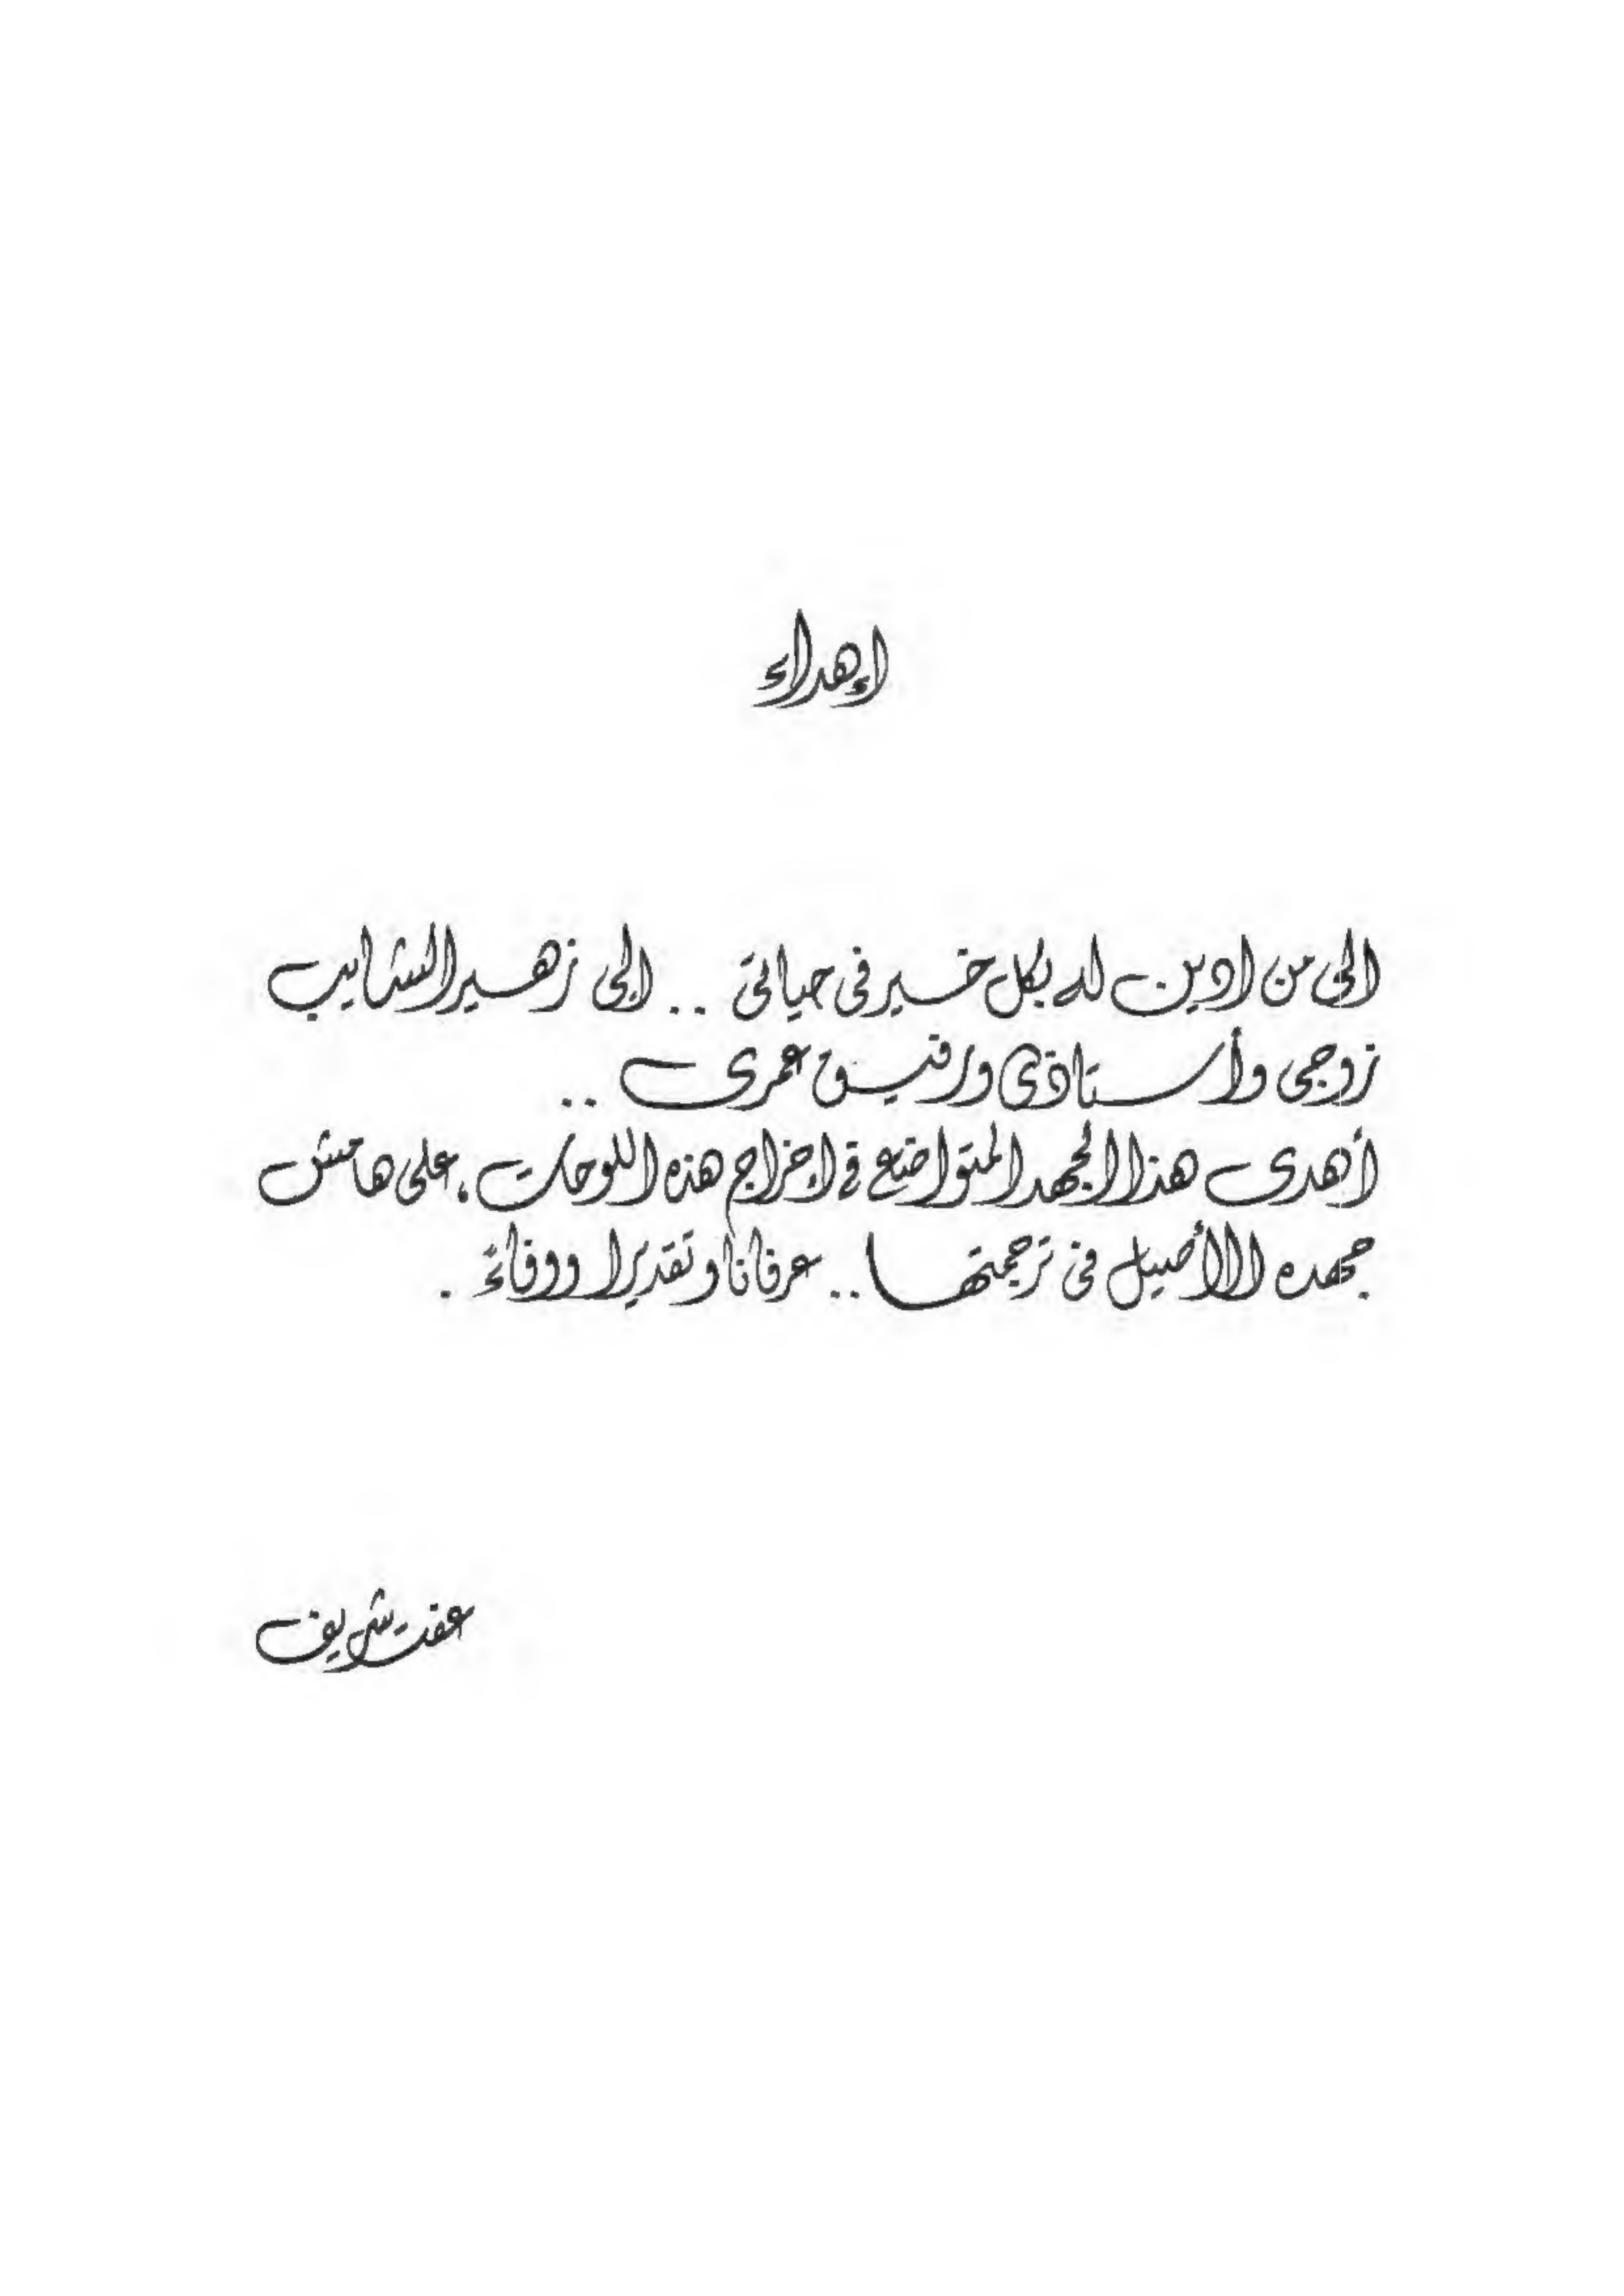 إهداء
الى من ادين له بكل خير فى حياتى .. الى زهير الشايب
زوجى وأستاذى ورفيق عمرى ..
أهدى هذا الجهد المتواضع في إخراج هذه اللوحات ، على هامش
جهده الأصيل فى ترجمتها .. عرفانا وتقديرا ووفاءً .
عفت شريف